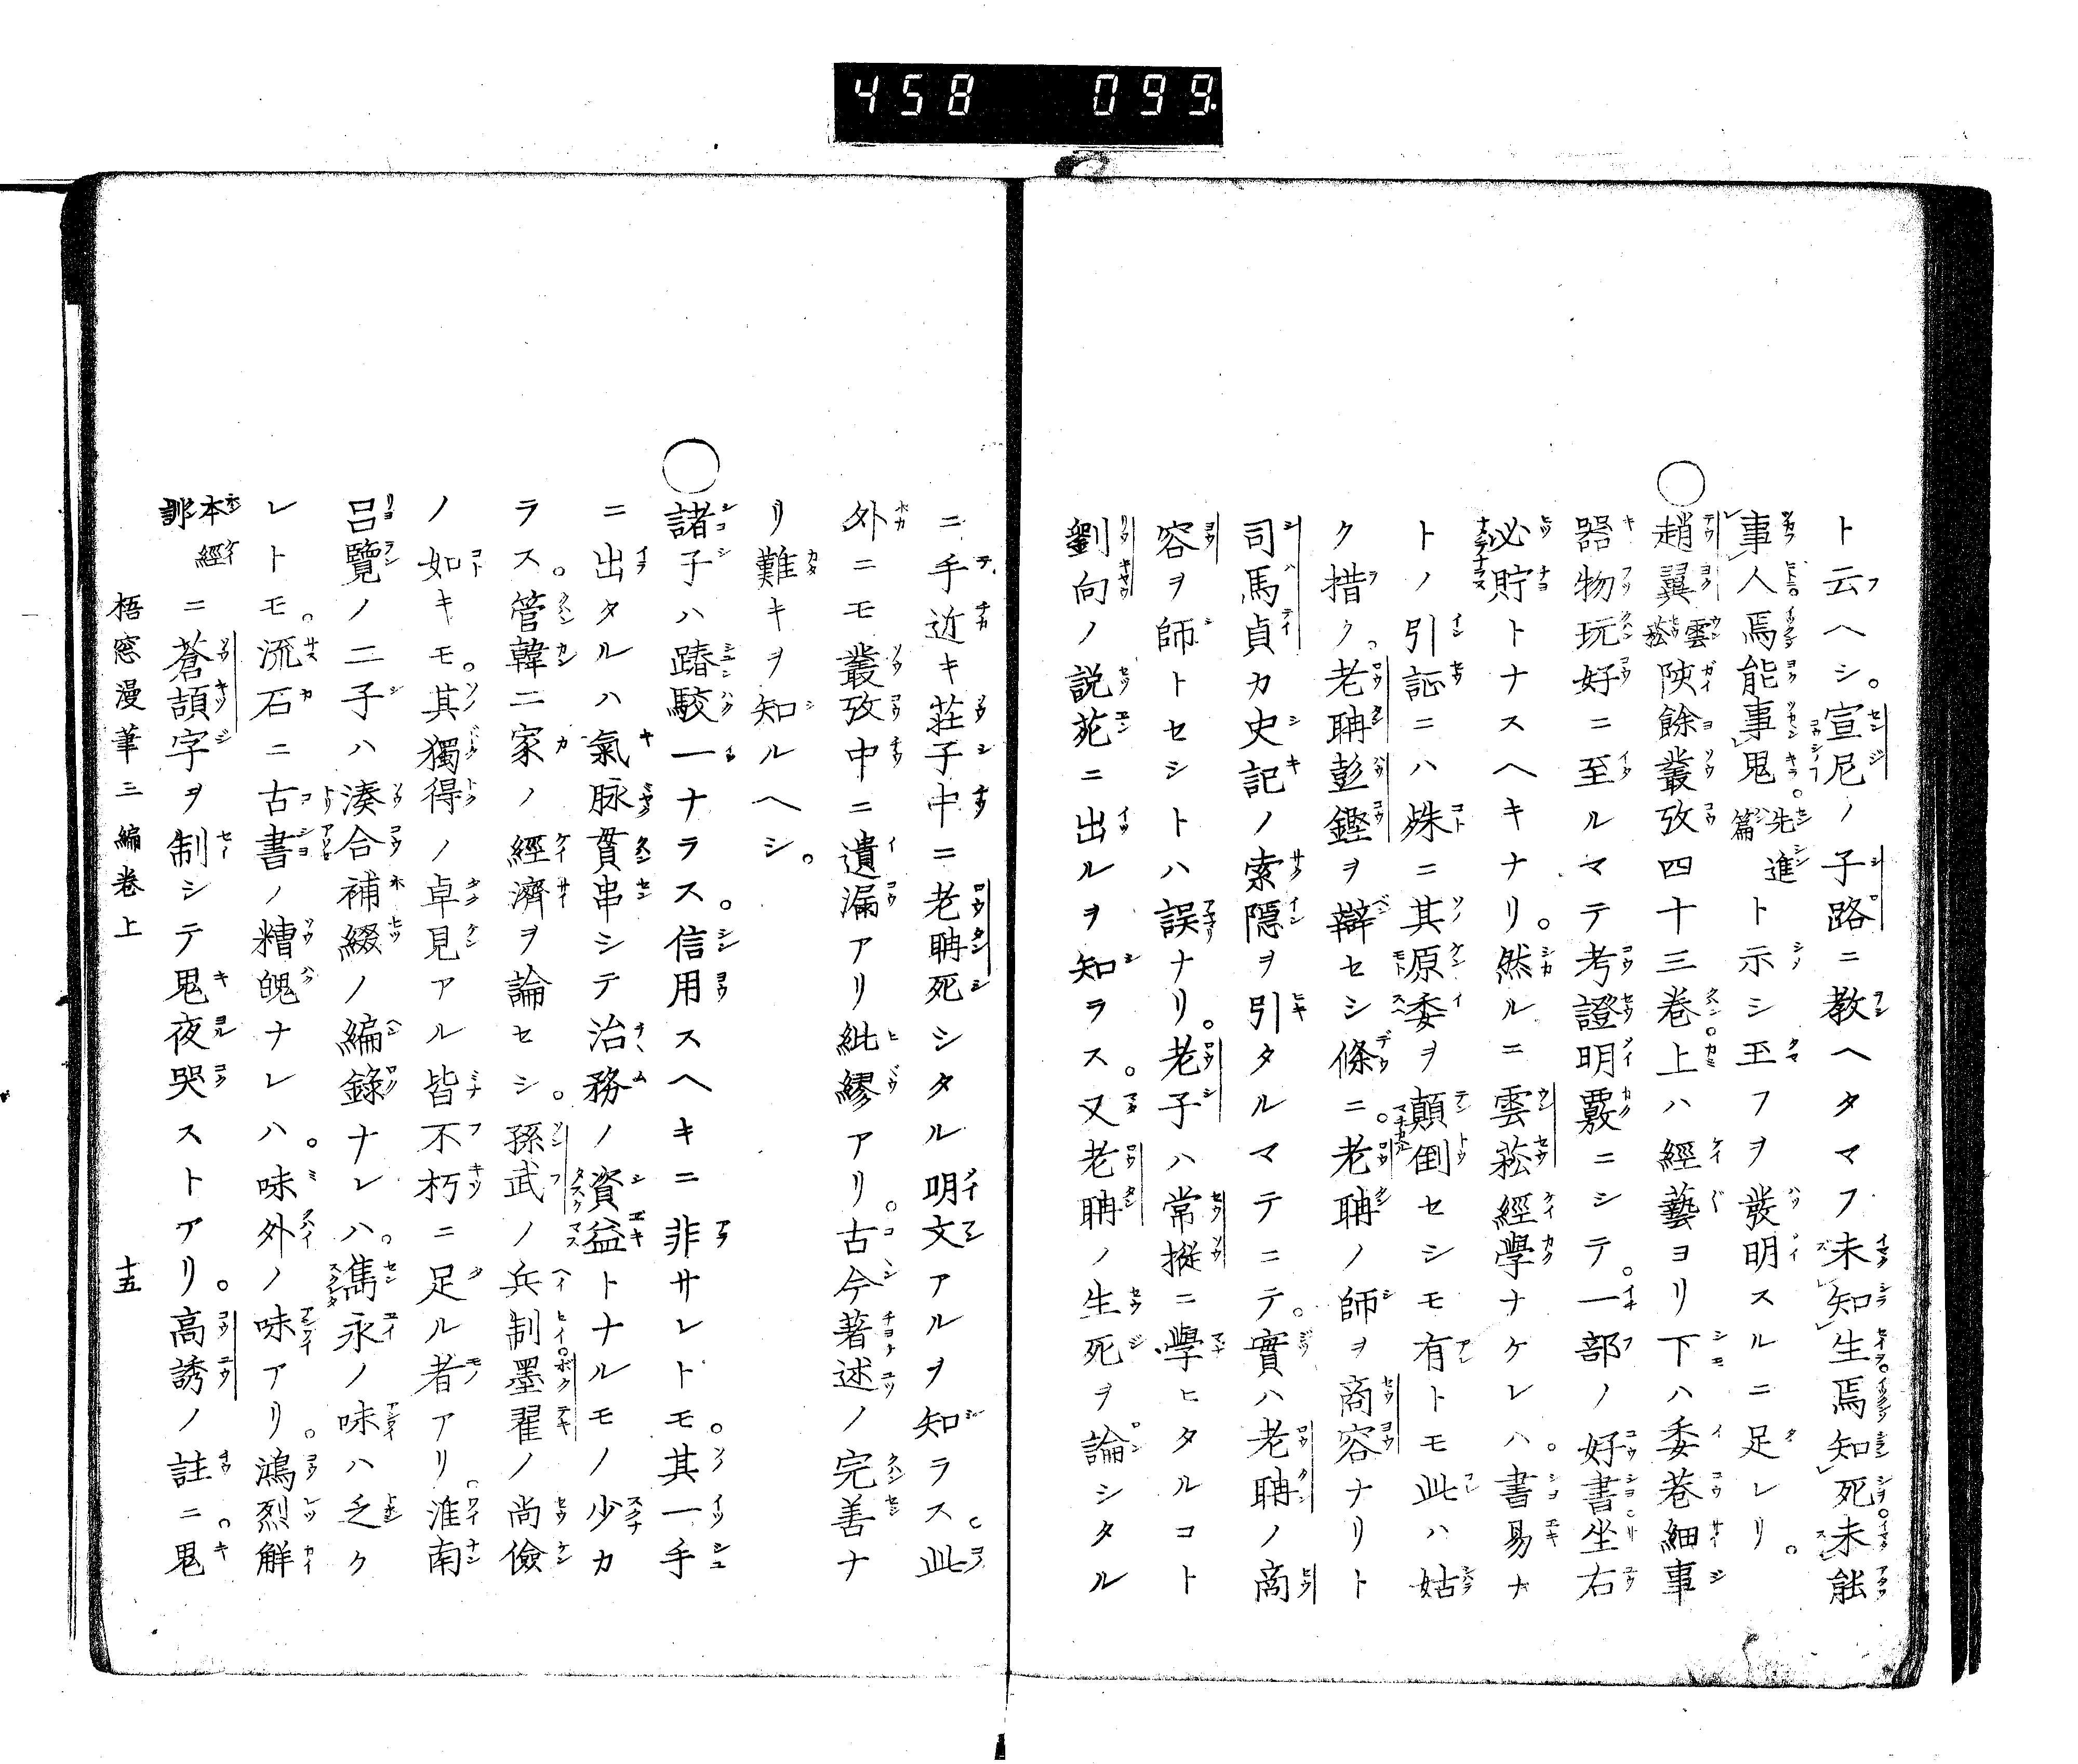 458 099
ト云ヘシ。宣尼ノ子路ニ教ヘタマフ未知生焉知死未能
事人焉能事鬼。先進篇ト示シ玉フヲ發明スルニ足レリ。
○趙翼雲菘陔餘叢攷四十三巻。上ハ經藝ヨリ下ハ委巷細事
器物玩好ニ至ルマテ考證明覈ニシテ。一部ノ好書坐右
必貯トナスヘキナリ。然ルニ雲菘經學ナケレハ。書易ナ
トノ引証ニハ殊ニ其原委ヲ顛倒セシモ有トモ此ハ姑
ク措ク。老聃彭鏗ヲ辯セシ條ニ。老聃ノ師ヲ商容ナリト
司馬貞カ史記ノ索隱ヲ引タルマテニテ。實ハ老聃ノ商
容ヲ師トセシトハ誤ナリ。老子ハ常摐ニ學ヒタルコト
劉向ノ説苑ニ出ルヲ知ラス。又老聃ノ生死ヲ論シタル
ニ手近キ莊子中ニ老聃死シタル明文アルヲ知ラス。此
外ニモ叢攷中ニ遺漏アリ紕繆アリ。古今著述ノ完善ナ
リ難キヲ知ルヘシ。
○諸子ハ踳駁一ナラス。信用スヘキニ非サレトモ。其一手
ニ出タルハ氣脉貫串シテ治務ノ資益トナルモノ少カ
ラス。管韓二家ノ經濟ヲ論セシ。孫武ノ兵制墨翟ノ尚儉
ノ如キモ。其獨得ノ卓見アル皆不朽ニ足ル者アリ。淮南
呂覽ノ二子ハ湊合補綴ノ編錄ナレハ。雋永ノ味ハ乏ク
レトモ。流石ニ古書ノ糟魄ナレハ。味外ノ味アリ。鴻烈解
本經訓ニ蒼頡字ヲ制シテ鬼夜哭ストアリ。高誘ノ註ニ。鬼
梧窓漫筆三編巻上 十五